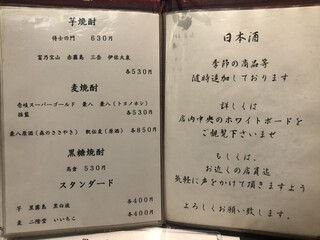 芋焼酎
博士の門 630円
富乃宝山 赤霧島 三岳 伊佐大泉
各530円
麦焼酎
壱岐スーパーゴールド 兼八 兼八(トヨノホシ)
各530円
兼八原酒(森のささやき)
各850円
黒糖焼酎
高倉 530円
スタンダード
芋 黒霧島 黒白波
各400円
麦 二階堂 いいちこ
各400円
日本酒
季節の商品等
随時追加しております
詳しくは
店内中央のホワイトボードを
ご観覧下さいませ
もしくは、
お近くの店員迄
気軽に声をかけて頂きますよう
よろしくお願い致します。